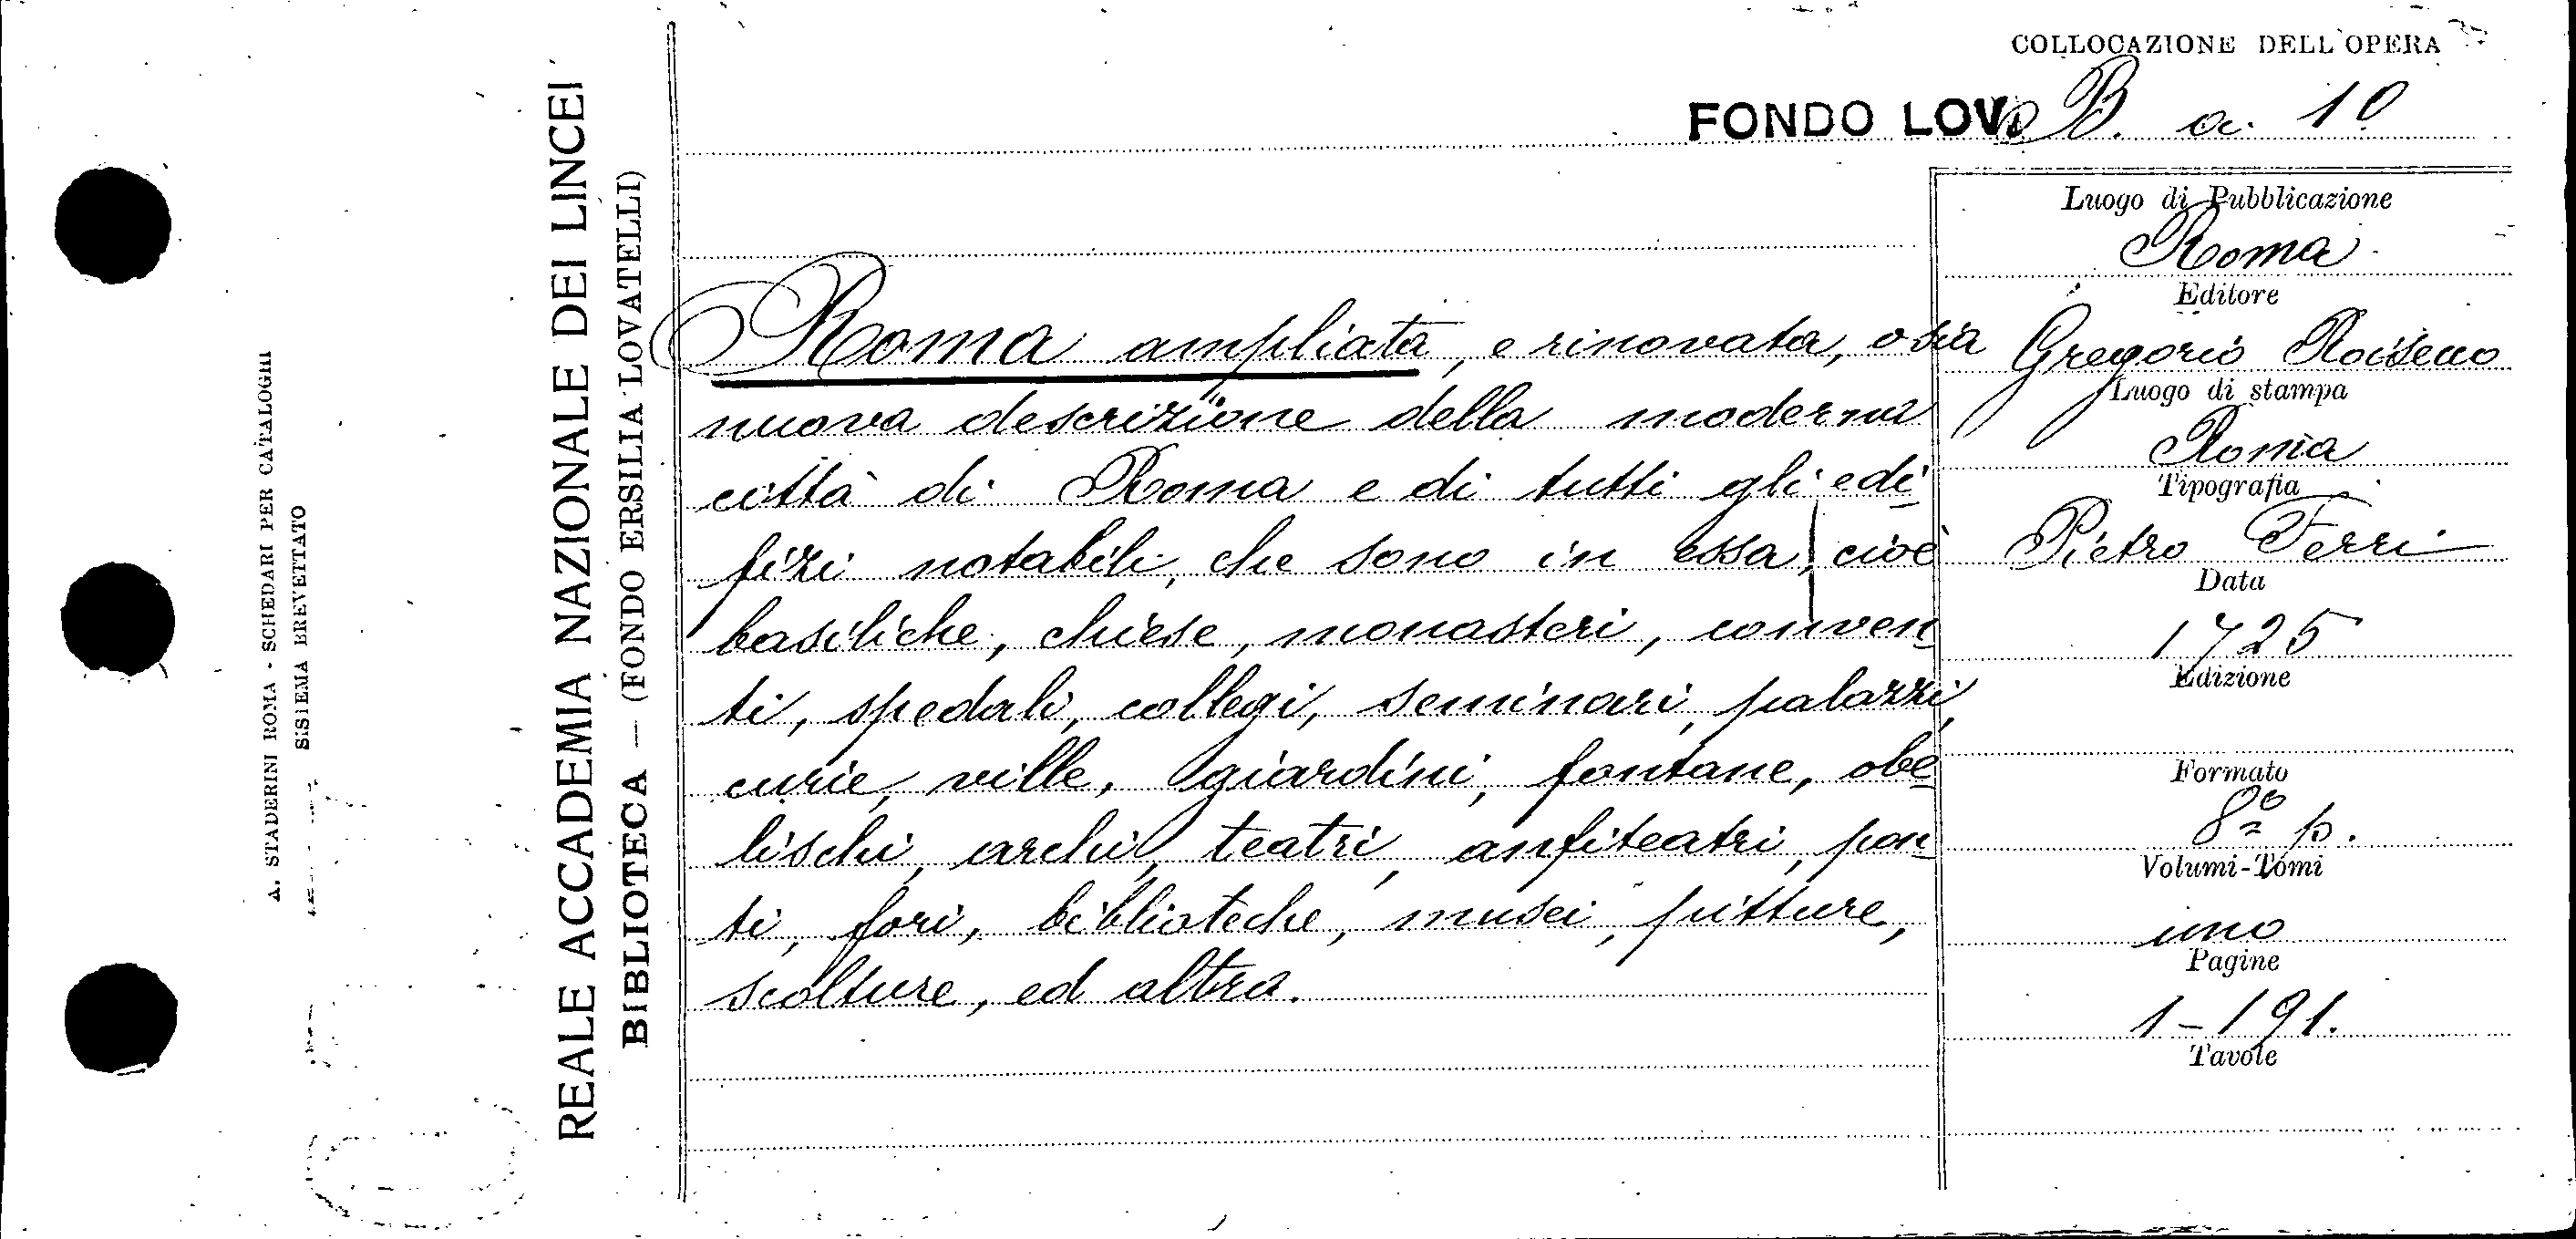 COLLOCAZIONE DELL'OPERA
FONDO LOV. B. a. 10
A. STADERINI ROMA - SCHEDARI PER CATALOGHI
SISTEMA BREVETTATO
REALE ACCADEMIA NAZIONALE DEI LINCEI
BIBLIOTECA — (FONDO ERSILIA LOVATELLI)
Roma ampliata, e rinovata, o sia
nuova descrizione della moderna
città di Roma e di tutti gli edi-
fizi notabili, che sono in essa, cioè
basiliche, chiese, monasteri, conven-
ti, spedali, collegi, seminari, palazzi,
curie, ville, giardini, fontane, obe-
lischi, archi, teatri, anfiteatri, pon-
ti, fori, biblioteche, musei, pitture,
scolture, ed altra.
Luogo di Pubblicazione
Roma
Editore
Gregorio Roisecco
Luogo di stampa
Roma
Tipografia
Pietro Ferri
Data
1725
Edizione
Formato
8º p.
Volumi-Tomi
uno
Pagine
1-191.
Tavole